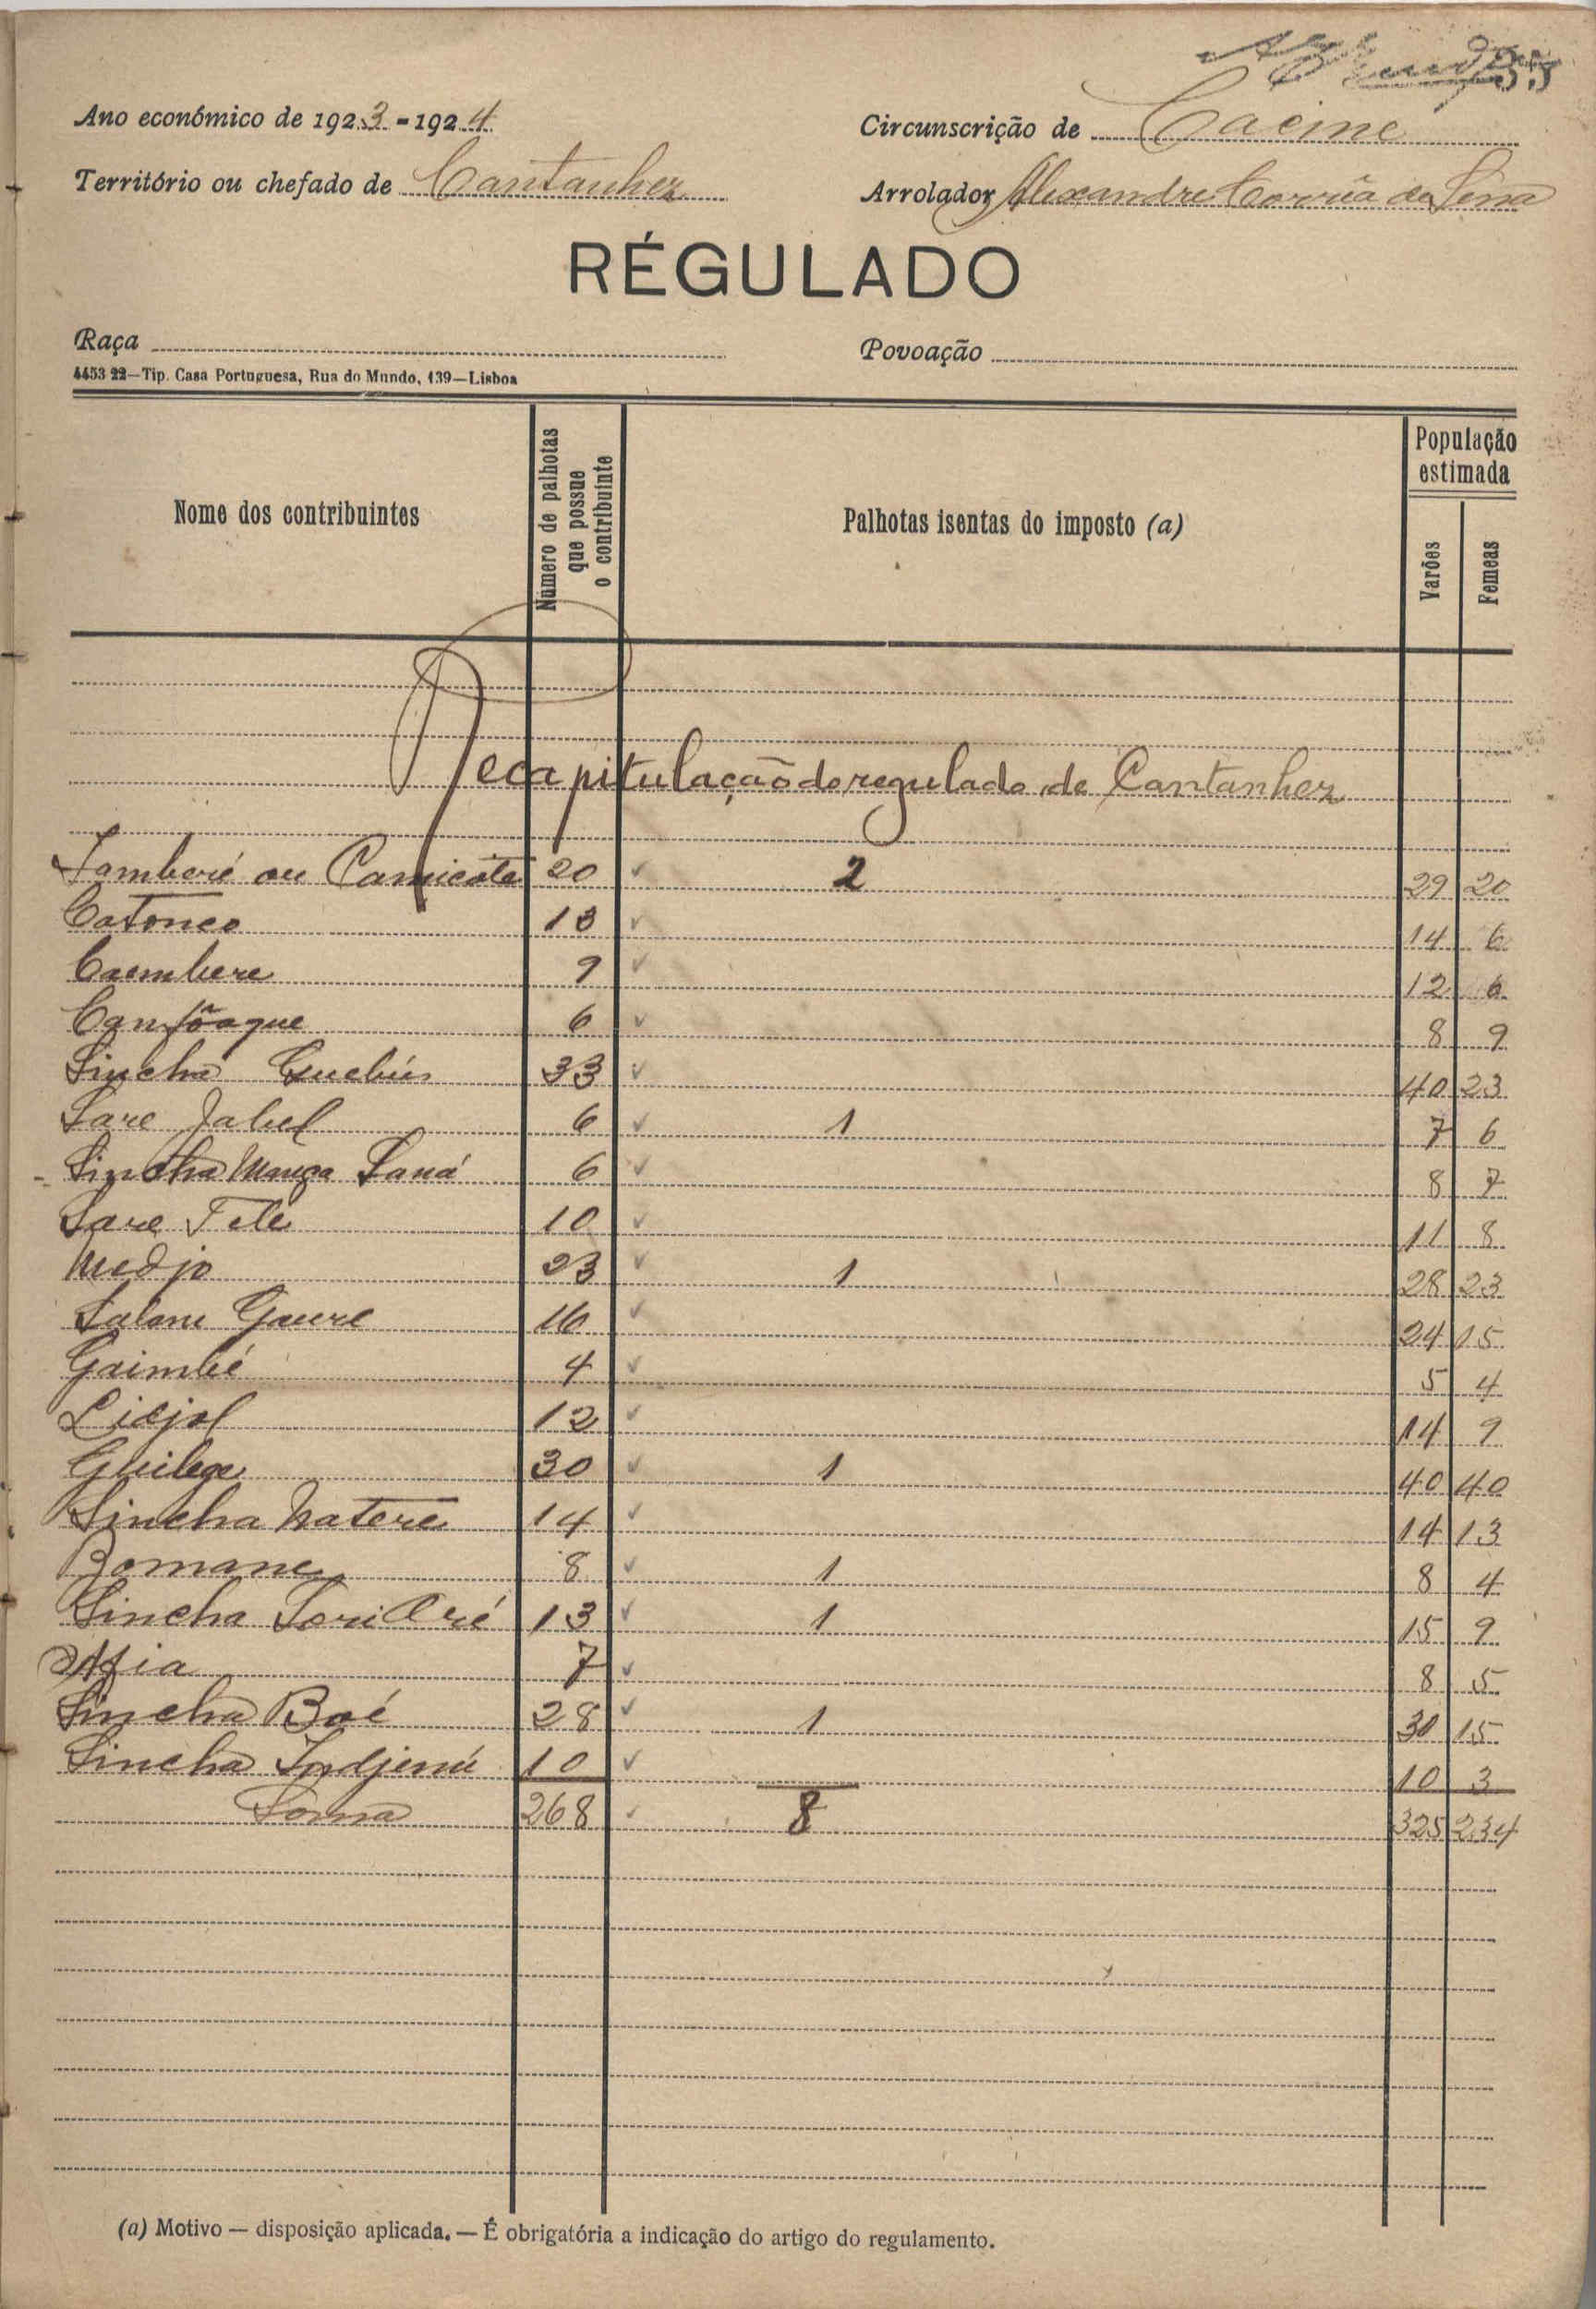 Ano económico de 1923-1924
Circunscrição de Cacine
Território ou chefado de Cantanhez
Arrolador Alexandre Corrêa de Sena
RÉGULADO
Raça
Povoação
4453 22—Tip. Casa Portuguesa, Rua do Mundo, 139—Lisboa
Nome dos contribuintes
Número de palhotas que possue o contribuinte
Palhotas isentas do imposto (a)
População estimada
Varões
Femeas
Recapitulação do regulado de Cantanhez
Tamberé ou Camicote 20 2 29 20
Catonco 13 14 6
Caembere 9 12 6
Canfôaque 6 8 9
Sincha 33 40 23
Sare Jabel 6 1 7 6
Sincha Manga Saná 6 8 7
Sare Tele 10 11 8
Medjo 23 1 28 23
Salane Gaure 16 24 15
Gaimbé 4 5 4
Lidjol 12 14 9
Guilege 30 1 40 40
Sincha Natere 14 14 13
Bomane 8 1 8 4
Sincha Tori 13 1 15 9
7 8 5
Sincha Boé 28 1 30 15
Sincha Indjenú 10 10 3
Soma 268 8 325 234
(a) Motivo — disposição aplicada. — É obrigatória a indicação do artigo do regulamento.